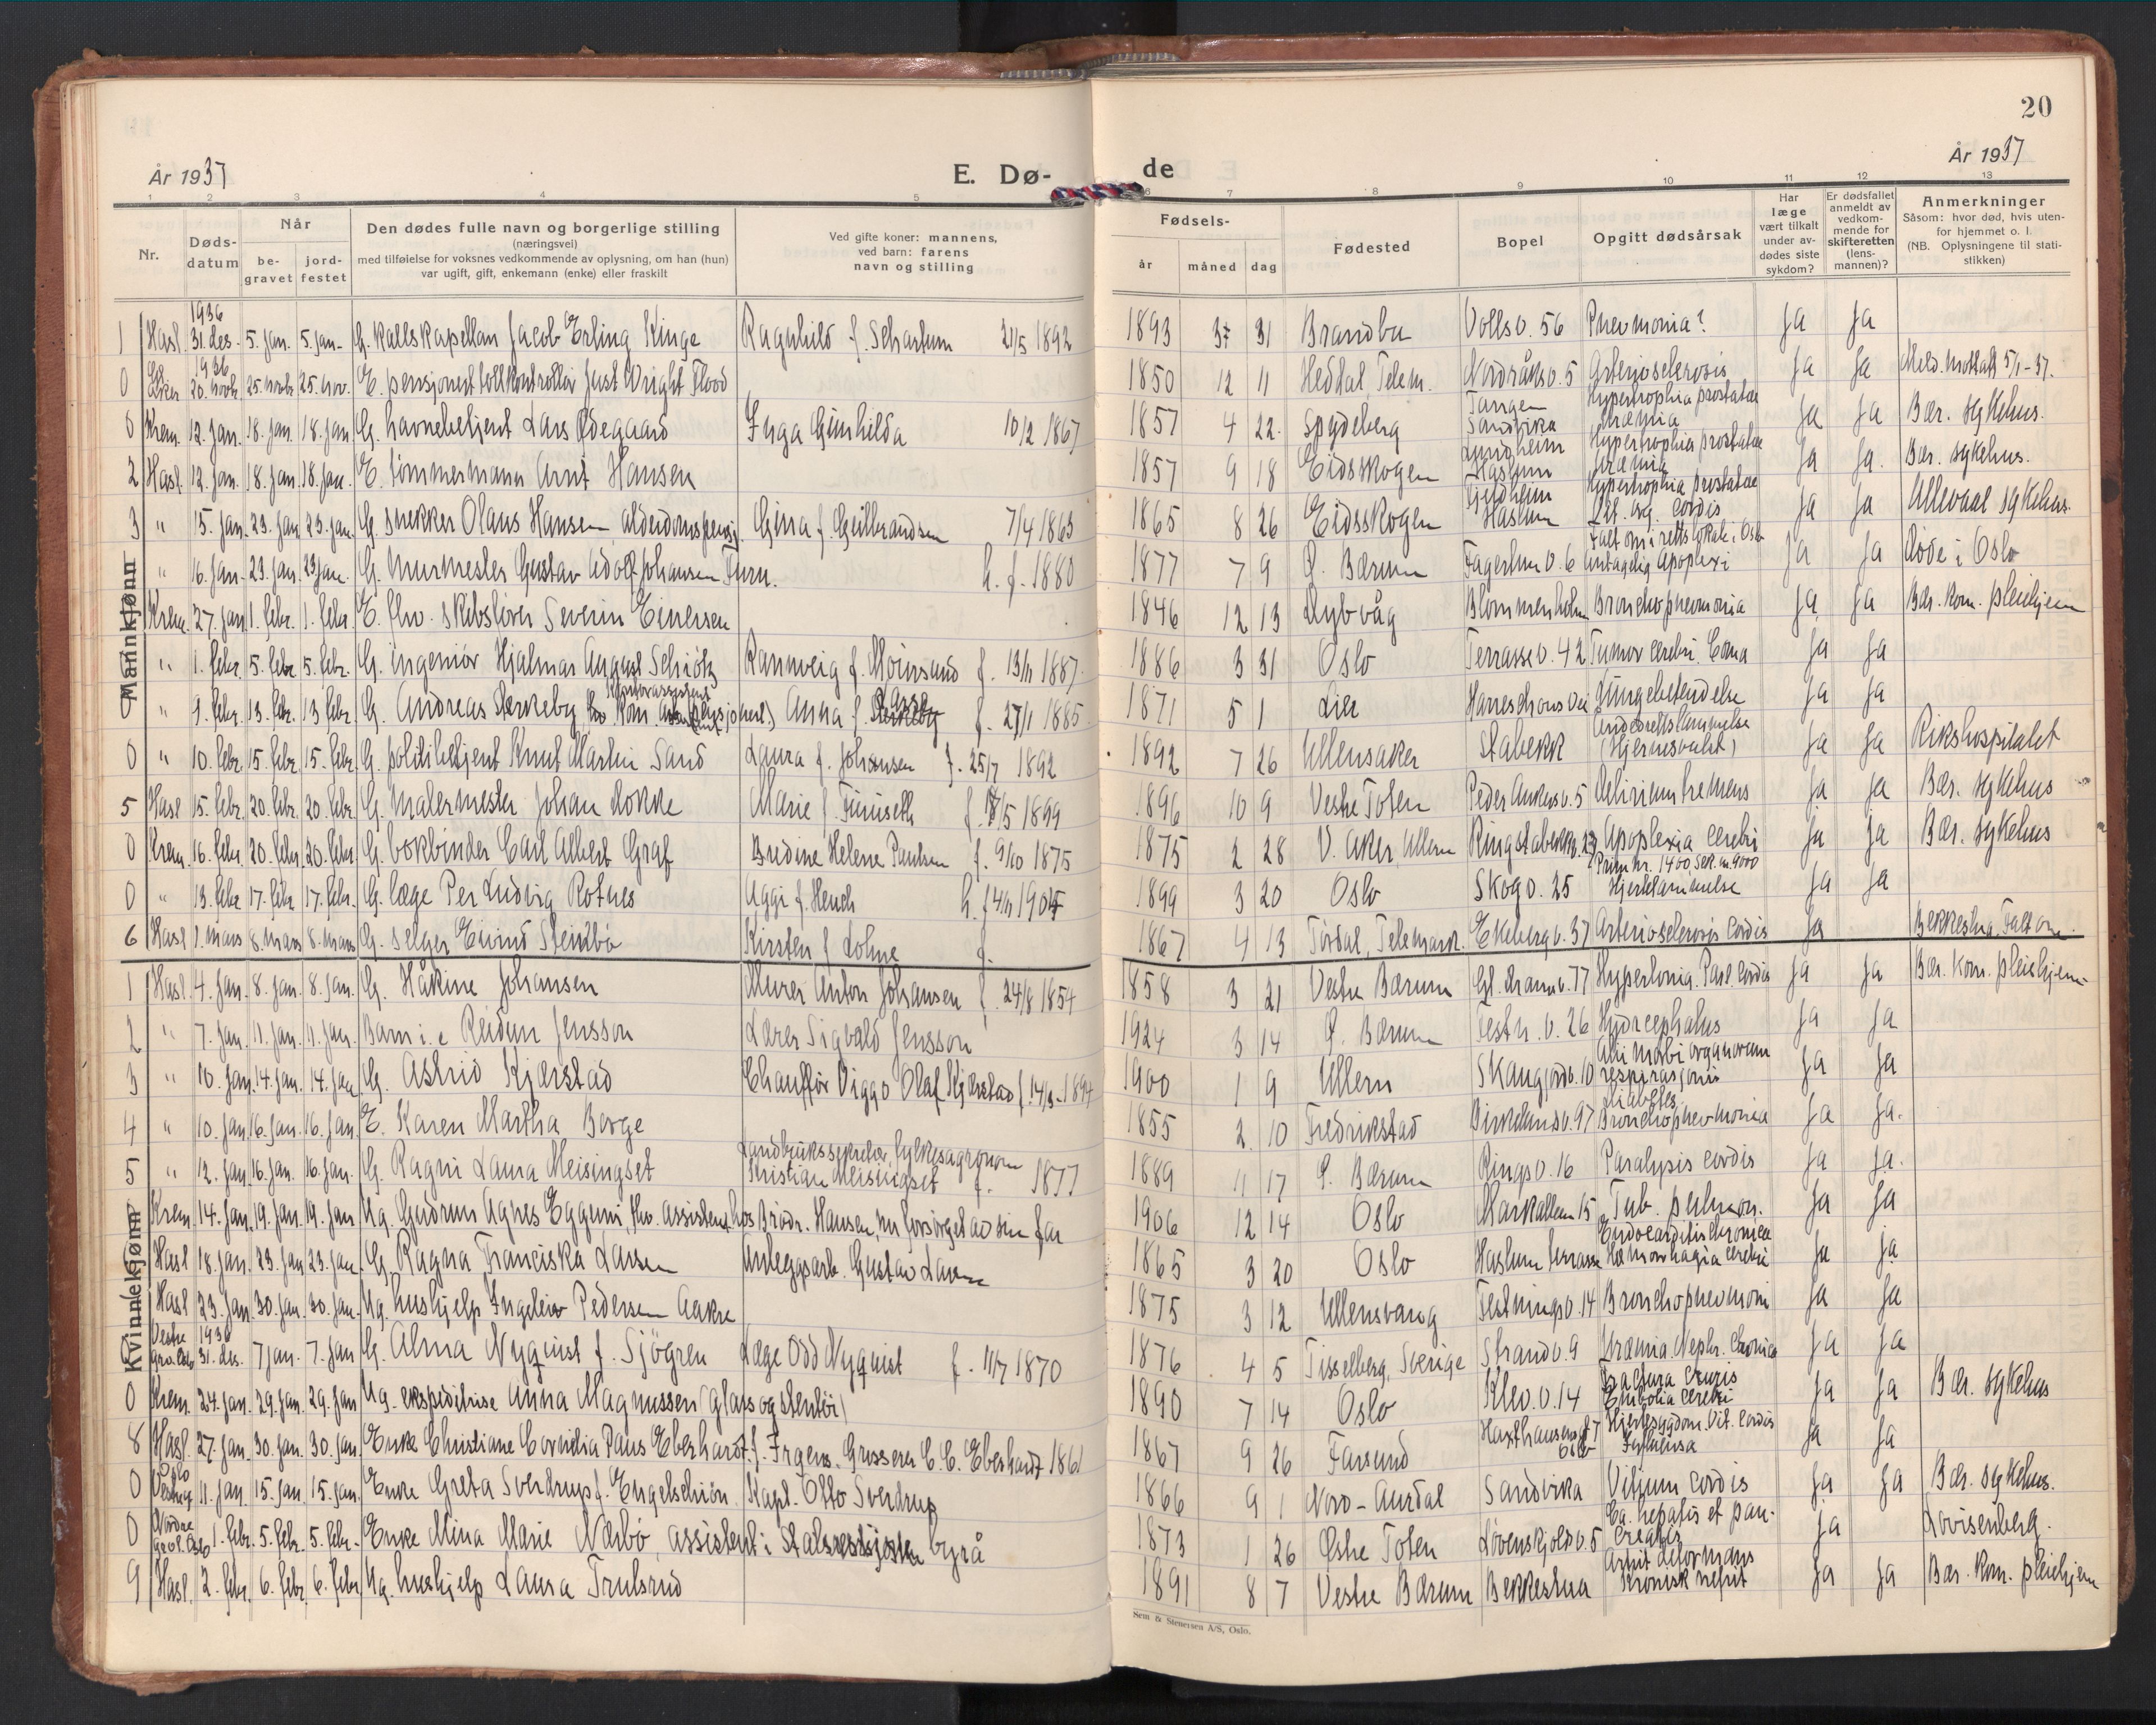 20
År 1937
E. Dø-
de
År 1937
1 2 3 4 5 6 7 8 9 10 11 12 13
Nr.
Døds-
datum
Når
be-
gravet
jord-
festet
Den dødes fulle navn og borgerlige stilling
(næringsvei)
med tilføielse for voksnes vedkommende av oplysning, om han (hun)
var ugift, gift, enkemann (enke) eller fraskilt
Ved gifte koner: mannens,
ved barn: farens
navn og stilling
Fødsels-
år måned dag
Fødested
Bopel
Opgitt dødsårsak
Har
læge
vært tilkalt
under av-
dødes siste
sykdom?
Er dødsfallet
anmeldt av
vedkom-
mende for
skifteretten
(lens-
mannen)?
Anmerkninger
Såsom: hvor død, hvis uten-
for hjemmet o. l.
(NB. Oplysningene til stati-
stikken)
Mannkjønn
1 Hasl. 1936 31. des. 5. jan. 5. jan. G. kallskapellan Jacob Erling Kinge Ragnhild f. Schartum 21/5 1892 1893 31 Brandbu Vollsv. 56 Pneumonia? Ja Ja
0 1936 20. novb. 25. novb. 25. nov. E. pensjonert tollkontrollør Just Wright Flood 1850 12 11 Heddal, Telem. Nordråksv. 5 Arteriosclerosis Ja Ja Meld. mottatt 5/1-37.
0 Krem. 12. jan. 18. jan. 18. jan. G. havnebetjent Lars Ødegaard Inga Gunhilda 10/2 1867 1857 4 22 Spydeberg Tangen Sandvika Hypertrophia prostatae Uræmia Ja Ja Bær. sykehus.
2 Hasl. 12. jan. 18. jan. 18. jan. E. tømmermann Arnt Hansen 1857 9 18 Eidskogen Lundheim Haslum Hypertrophia prostatae Uræmia Ja Ja. Bær. sykehus.
3 " 15. jan. 23. jan. 23. jan. G. snekker Olaus Hansen, alderdomspensj. Gina f. Gulbrandsen 7/4 1863 1865 8 26 Eidsskogen Haslum Hypertrophia prostatae cordis Ja Ja Ullevaal sykehus.
" 16. jan. 23. jan. 23. jan. G. Murmester Gustav Adolf Johansen Furu. h. f. 1880 1877 7 9 Ø. Bærum Fagerlun v. 6 Falt om i rettslokale, Oslo antagelig Apoplexi Ja Ja Døde i Oslo
Krem. 27. jan. 1. febr. 1. febr. E. fhv. skibsfører Severin Einersen 1846 12 13 Dybvåg Blommenholm Bronchopneumonia Ja Ja Bær. kom. pleiehjem
" 1. febr. 5. febr. 5. febr. G. ingeniør Hjalmar August Schiøtz Rannveig f. Moinsund f. 13/11 1887. 1886 3 31 Oslo Terrassev. 42 Tumor cerebri. Coma Ja Ja
0 " 9. febr. 13. febr. 13. febr. G. Andreas Kontorassistent kom. Anna f. f. 27/1 1885. 1871 5 1 Lier Haneschous Vei Lungebetendelse Ja Ja
0 " 10. febr. 15. febr. 15. febr. G. politibetjent Knut Martin Sand Laura f. Johansen f. 25/7 1892 1892 7 26 Ullensaker Stabekk Aandedrettslammelse (Hjernesvulst) Ja Ja Rikshospitalet
5 Hasl 15. febr. 20. febr. 20. febr. G. malermester Johan Lokke Marie f. Finiseth f. /5 1899 1896 10 9 Vestre Toten Peder Ankersv. 5 Delirium tremens Ja Ja Bær. sykehus
0 Krem. 16. febr. 20. febr. 20. febr. G. bokbinder Carl Albert Graf Bredine Helene Paulsen f. 9/10 1875 1875 2 28 V. Aker, Ullern Ringstabekkv. 23 Apoplexia cerebri Ja Ja Bær. sykehus
0 " 13. febr. 17. febr. 17. febr. G. læge Per Ludvig Rotnes Aggi f. Heuch h. f. 4/11 1904 1899 3 20 Oslo Skogv. 25 Prim nr. 1400, sek. nr. 9000 Hjertelammelse Ja Ja
6 Hasl 1. mars 8. mars 8. mars G. selger Eivind Steinbø Kirsten f. Lohne f. 1867 4 13 Tørdal, Telemark. Ekebergv. 37 Arteriosclerosis cordis Ja Bekkestua, Falt om.
Kvinnekjønn
1 Hasl. 4. jan. 8. jan. 8. jan. G. Håkine Johansen Murer Anton Johansen f. 24/8 1854 1858 3 21 Vestre Bærum Gl. dramv. 77 Hypertonia. Paral. cordis Ja Ja Bær. Kom. pleiehjem
2 " 7. jan. 11. jan. 11. jan. Barn i. e Reidun Jensson Lærer Sigvald Jensson 1924 3 14 Ø. Bærum Festn. v. 26 Hydrcephalus Ja Ja
3 " 10. jan. 14. jan. 14. jan. G. Astrid Kjærstad Chauffør Viggo Olaf Kjærstad f. 14/3-1894 1900 1 9 Ullern Skaugjordv. 10 Alii morbi organorum respirasjonis Ja Ja
4 " 10. jan. 16. jan. 16. jan. E. Karen Martha Borge 1855 2. 10 Fredrikstad Birkelundv. 97 Diabetes Bronchopneumonia Ja Ja.
5 " 12. jan. 16. jan. 16. jan. G. Ragni Laura Meisingset Landbrukssekretær, fylkesagronom Kristian Meisingset f. 1877 1889 11 17 Ø. Bærum Ringsv. 16 Paralysis cordis Ja Ja.
Krem. 14. jan. 19. jan. 19. jan. Ug. Gudrun Agnes Eggum, fhv. assistent hos Brødr. Hansen, nu forsørget av sin far 1906 12 14 Oslo Markalleen 15 Tub. pulmon. Ja Ja
Hasl 18. jan. 23. jan. 23. jan. G. Ragna Franciska Larsen Anleggsarb. Gustav Larsen 1865 3 20 Oslo Haslum terrasse Endocarditis chronica Hæmorrhagia cerebri Ja Ja
Hasl 23. jan. 30. jan. 30. jan. Ug. hushjelp Ingeleiv Pedersen Aakre 1875 3 12 Ullensvang Festningsv. 14 Bronchopneumoni Ja Ja
Vestre Grav. Oslo 1936 31. des. 7 jan. 7. jan G. Alma Nyquist f. Sjögren Læge Odd Nyquist f. 11/7 1870 1876 4 5 Tisselberg, Sverige Strandv. 9 Uræmia. Nephr. Chronica Ja Ja
0 Krem. 24. jan. 29. jan. 29. jan Ug. ekspeditrise Anna Magnussen (glass og stentøi) 1890 7 14 Oslo Klev. v. 14 Fractura cruris Embolia cerebri Ja Ja Bær. sykehus
8 Hasl. 27. jan. 30. jan. 30. jan. Enke Christiane Cornelia Paus Eberhardt f. Irgens. Grosserer C. C. Eberhardt 1861 1867 9 26 Farsund Haxthausensgt 7 Oslo Hjertesygdom. Vit. cordis Influensa Ja Ja
0 Oslo 11. jan. 15. jan. 15. jan. Enke Greta Sverdrup f. Engelschiøn. Kapt. Otto Sverdrup 1866 9 1 Nord-Aurdal Sandvika Vitium cordis Ja Ja Bær. sykehus.
0 Nordre Grav. Oslo 1. febr. 5. febr. 5. febr. Enke Mina Marie Nærbø, assistent i byrå 1873 1 26 Østre Toten Løvenskjoldsv. 5 Ca. hepatis et pan- creatis Ja Lovisenberg.
9 Hasl. 2. febr. 6. febr. 6. febr Ug. hushjelp Laura Trulsrud 1891 8 7 Vestre Bærum Bekkestua Artrit deformans Kronisk nefrit Ja Ja Bær. Kom. pleiehjem
Sem & Stenersen A/S, Oslo.